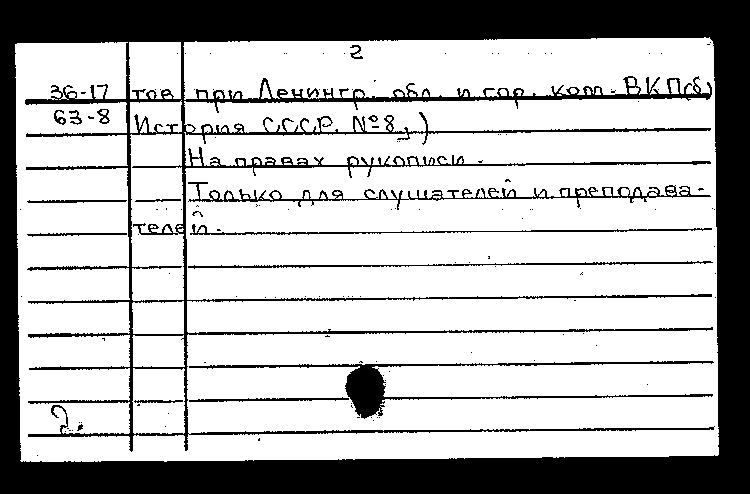 2
36-17 тов при Ленингр. обл. и гор. ком. ВКП(б)
63-8 История СССР. № 8.)
На правах рукописи.
Только для слушателей и преподава-
телей.